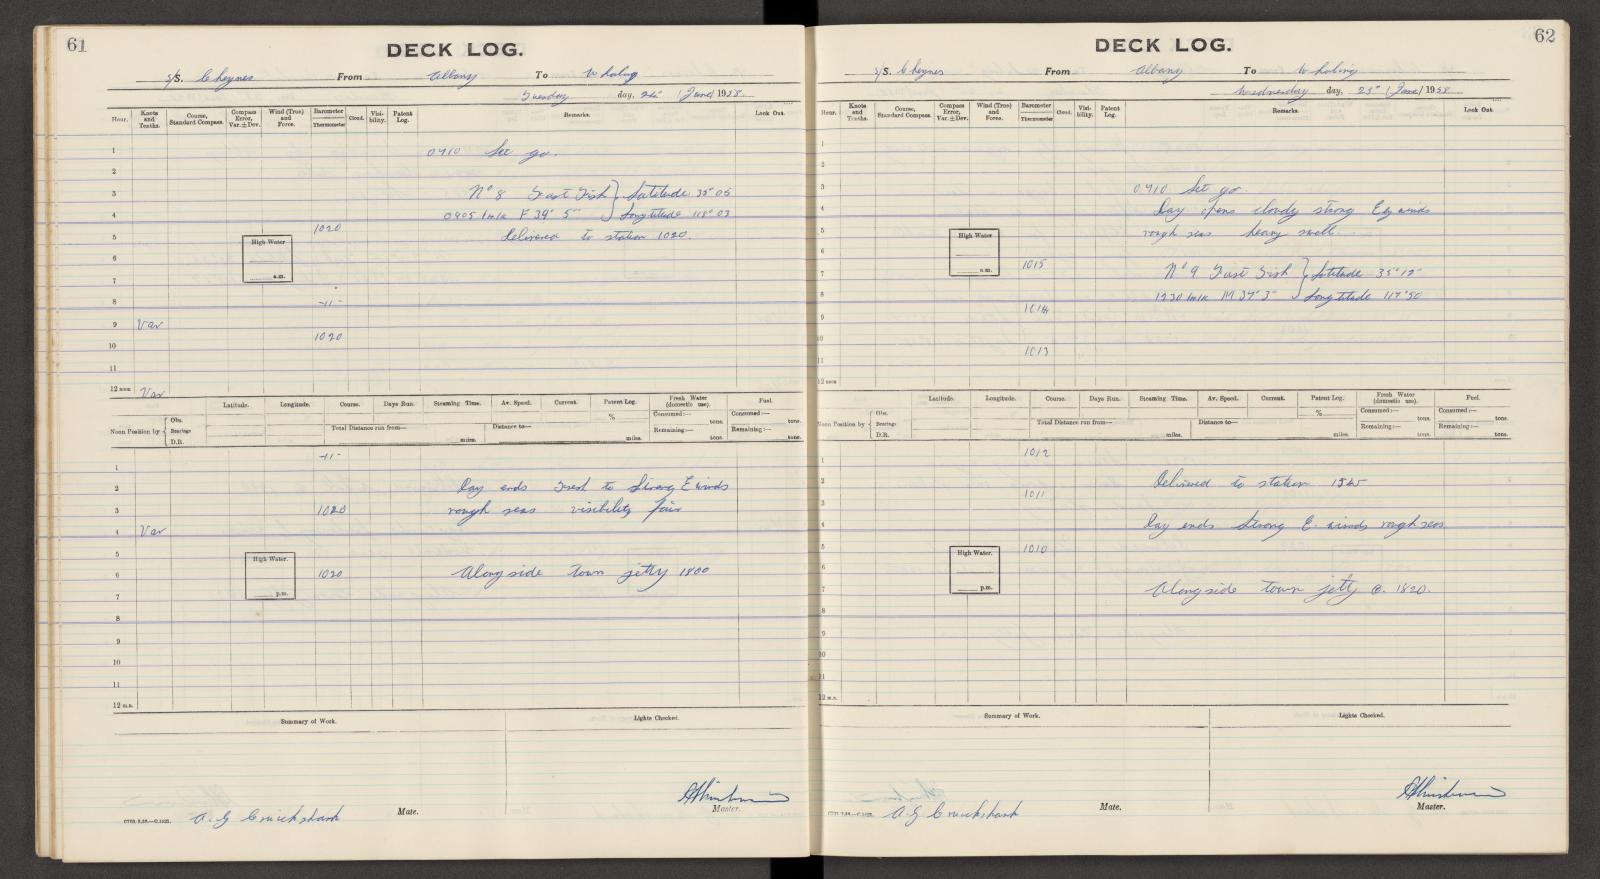 61
DECK LOG.
s/S. Cheynes From Albany To Whaling
Tuesday day, 24th (June) 1958.
Hour. Knots and Tenths. Course, Standard Compass. Compass Error, Var. ± Dev. Wind (True) and Force. Barometer Thermometer Cloud. Visi-bility. Patent Log. Remarks. Look Out.
1 0710 Set go.
2
3 No 8 Fast Fish } Latitude 35° 05
4 0905 1m/k F 39' 5" } Longtitude 118° 03
1020
5 Delivered to station 1020.
High Water
6
a.m.
7
8 -11-
9 Var
10 1020
11
12 noon Var
Latitude. Longitude. Course. Days Run. Steaming Time. Av. Speed. Current. Patent Log. Fresh Water (domestic use). Fuel.
% Consumed:— tons. Consumed:— tons.
Noon Position by { Obs. Bearings D.R. Total Distance run from— miles. Distance to— miles. Remaining:— tons. Remaining:— tons.
-11-
1
2 Day ends Fresh to Strong E winds
3 1020 rough seas visibility fair
4 Var
5
High Water.
6 1020 Alongside town jetty 1800
7 p.m.
8
9
10
11
12 m.n.
Summary of Work. Lights Checked.
A. G Cruickshank Mate. Master.
62
DECK LOG.
s/S. Cheynes From Albany To Whaling
Wednesday day, 25th (June) 1958
Hour. Knots and Tenths. Course, Standard Compass. Compass Error, Var. ± Dev. Wind (True) and Force. Barometer Thermometer Cloud. Visi-bility. Patent Log. Remarks. Look Out.
1
2
3 0710 Set go.
4 Day opens cloudy strong Ely winds
5 rough seas heavy swell.
High Water
6
1015 No 9 Fast Fish } Latitude 35° 12"
a.m.
7
8 1230 1m/k M 37' 3" } Longtitude 117° 50
1014
9
10
1013
11
12 noon
Latitude. Longitude. Course. Days Run. Steaming Time. Av. Speed. Current. Patent Log. Fresh Water (domestic use). Fuel.
% Consumed:— tons. Consumed:— tons.
Noon Position by { Obs. Bearings D.R. Total Distance run from— miles. Distance to— miles. Remaining:— tons. Remaining:— tons.
1012
1
2 Delivered to station 1545
1011
3
4 Day ends Strong E. winds rough seas
5 1010
High Water.
6
7 p.m. Alongside town jetty @. 1820.
8
9
10
11
12 m.n.
Summary of Work. Lights Checked.
A G Cruickshank Mate. Master.